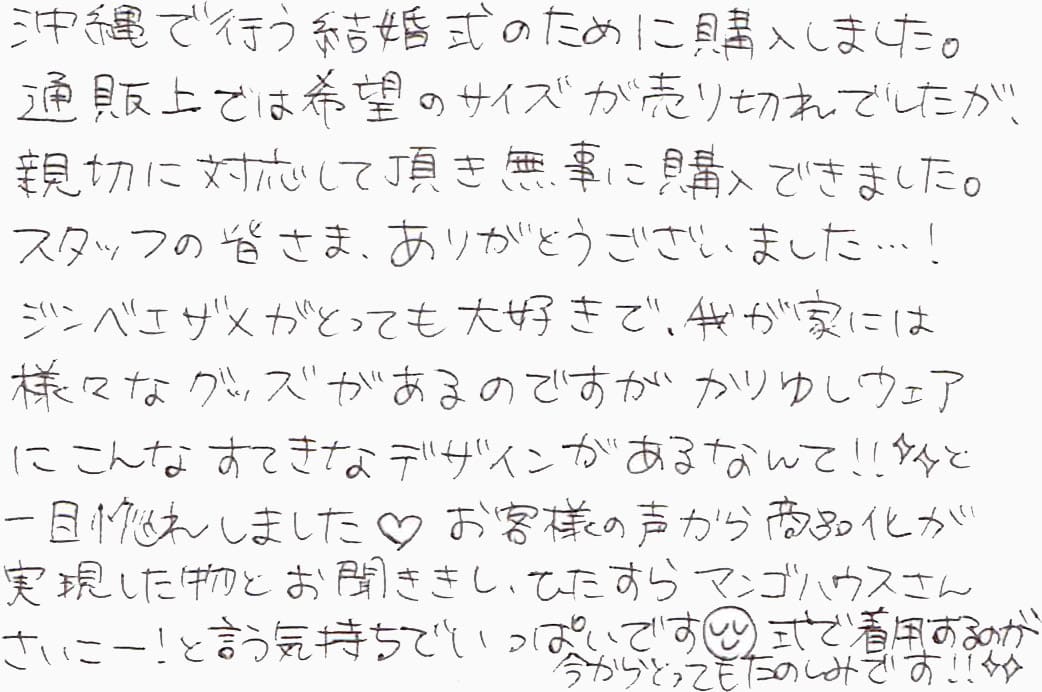 沖縄で行う結婚式のために購入しました。
通販上では希望のサイズが売り切れでしたが、
親切に対応して頂き無事に購入できました。
スタッフの皆さま、ありがとうございました…！
ジンベエザメがとっても大好きで、我が家には
様々なグッズがあるのですが かりゆしウェア
にこんなすてきなデザインがあるなんて!!✧✧と
一目惚れしました♡ お客様の声から商品化が
実現した物とお聞ききし、ひたすらマンゴハウスさん
さいこー！と言う気持ちでいっぱいです 式で着用するのが
今からとってもたのしみです!!✧✧